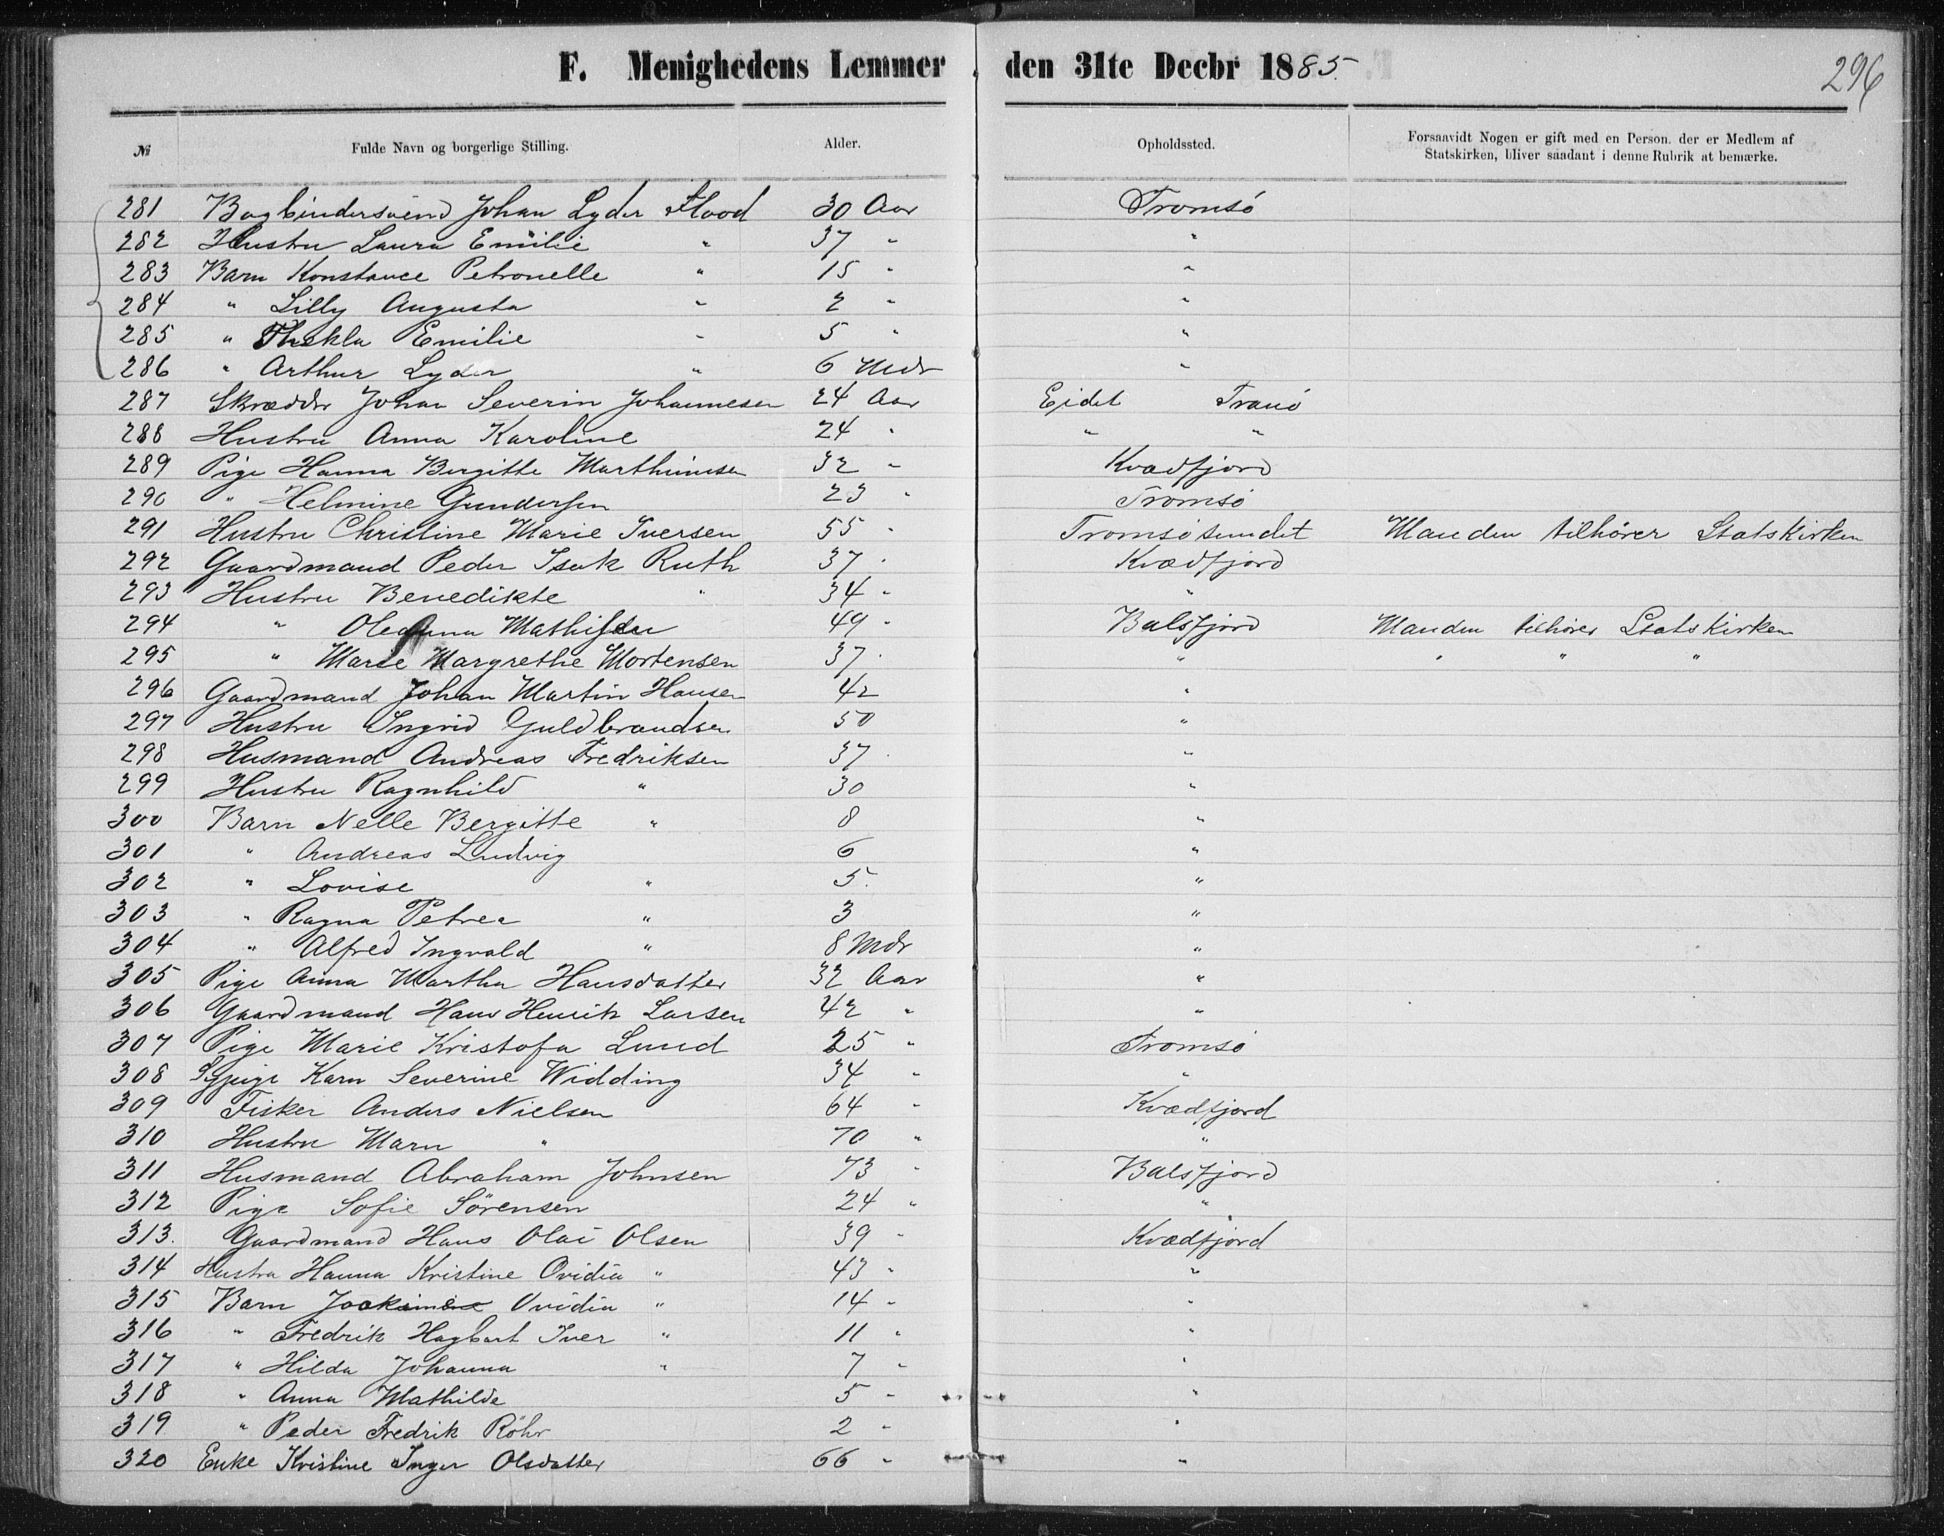 F. Menighedens Lemmer den 31te Decbr 1885.
296
№ Fulde Navn og borgerlige Stilling. Alder. Opholdssted. Forsaavidt Nogen er gift med en Person, der er Medlem af
Statskirken, bliver saadant i denne Rubrik at bemærke.
281 Bogbindersvend Johan Lyder Flood 30 Aar Tromsö
282 Hustru Laura Emilie " 37 " "
283 Barn Konstance Petronelle " 15 " "
284 " Lilly Augusta " 2 " "
285 " Thekla Emilie " 5 " "
286 " Arthur Lyder " 6 Mdr "
287 Skrædder Johan Severin Johannesen 24 Aar Eidet Tranö
288 Hustru Anna Karoline 24 " " "
289 Pige Hanna Bergitte Marthinusen 32 " Kvædfjord
290 " Helmine Gundersen 23 " Tromsö
291 Hustru Christine Marie Iversen 55 " Tromsösundet Manden tilhører Statskirken
292 Gaardmand Peder Isak Ruth 37 " Kvædfjord
293 Hustru Benedikte " 34 " "
294 " Oleanna Mathisen 49 " Balsfjord Manden tilhører Statskirken
295 " Marie Margrethe Mortensen 37 " " " " "
296 Gaardmand Johan Martin Hansen 42 "
297 Hustru Ingrid Guldbrandsen 50 "
298 Husmand Andreas Fredriksen 37 "
299 Hustru Ragnhild " 30 "
300 Barn Nelle Bergitte " 8 "
301 " Andreas Ludvig 6 "
302 " Lovise " 5 "
303 " Ragna Petrea " 3 "
304 " Alfred Ingvald " 8 Mdr "
305 Pige Anna Martha Hansdatter 32 Aar "
306 Gaardmand Hans Henrik Larsen 42 " "
307 Pige Marie Kristofa Lund 25 " Tromsö
308 Sypige Karn Severine Widding 34 " "
309 Fisker Anders Nielsen 64 " Kvædfjord
310 Hustru Marn " 70 " "
311 Husmand Abraham Johnsen 73 " Balsfjord
312 Pige Sofie Sörensen 24 " "
313. Gaardmand Hans Olai Olsen 39 " Kvædfjord
314 Hustru Hanna Kristine Ovidia " 43 " "
315 Barn Joakimine Ovidia " 14 " "
316 " Fredrik Hagbart Iver " 11 " "
317 " Hilda Johanna " 7 " "
318 " Anna Mathilde 5 " "
319 " Peder Fredrik Röhr 2 " "
320 Enke Kristine Inger Olsdatter 66 " "